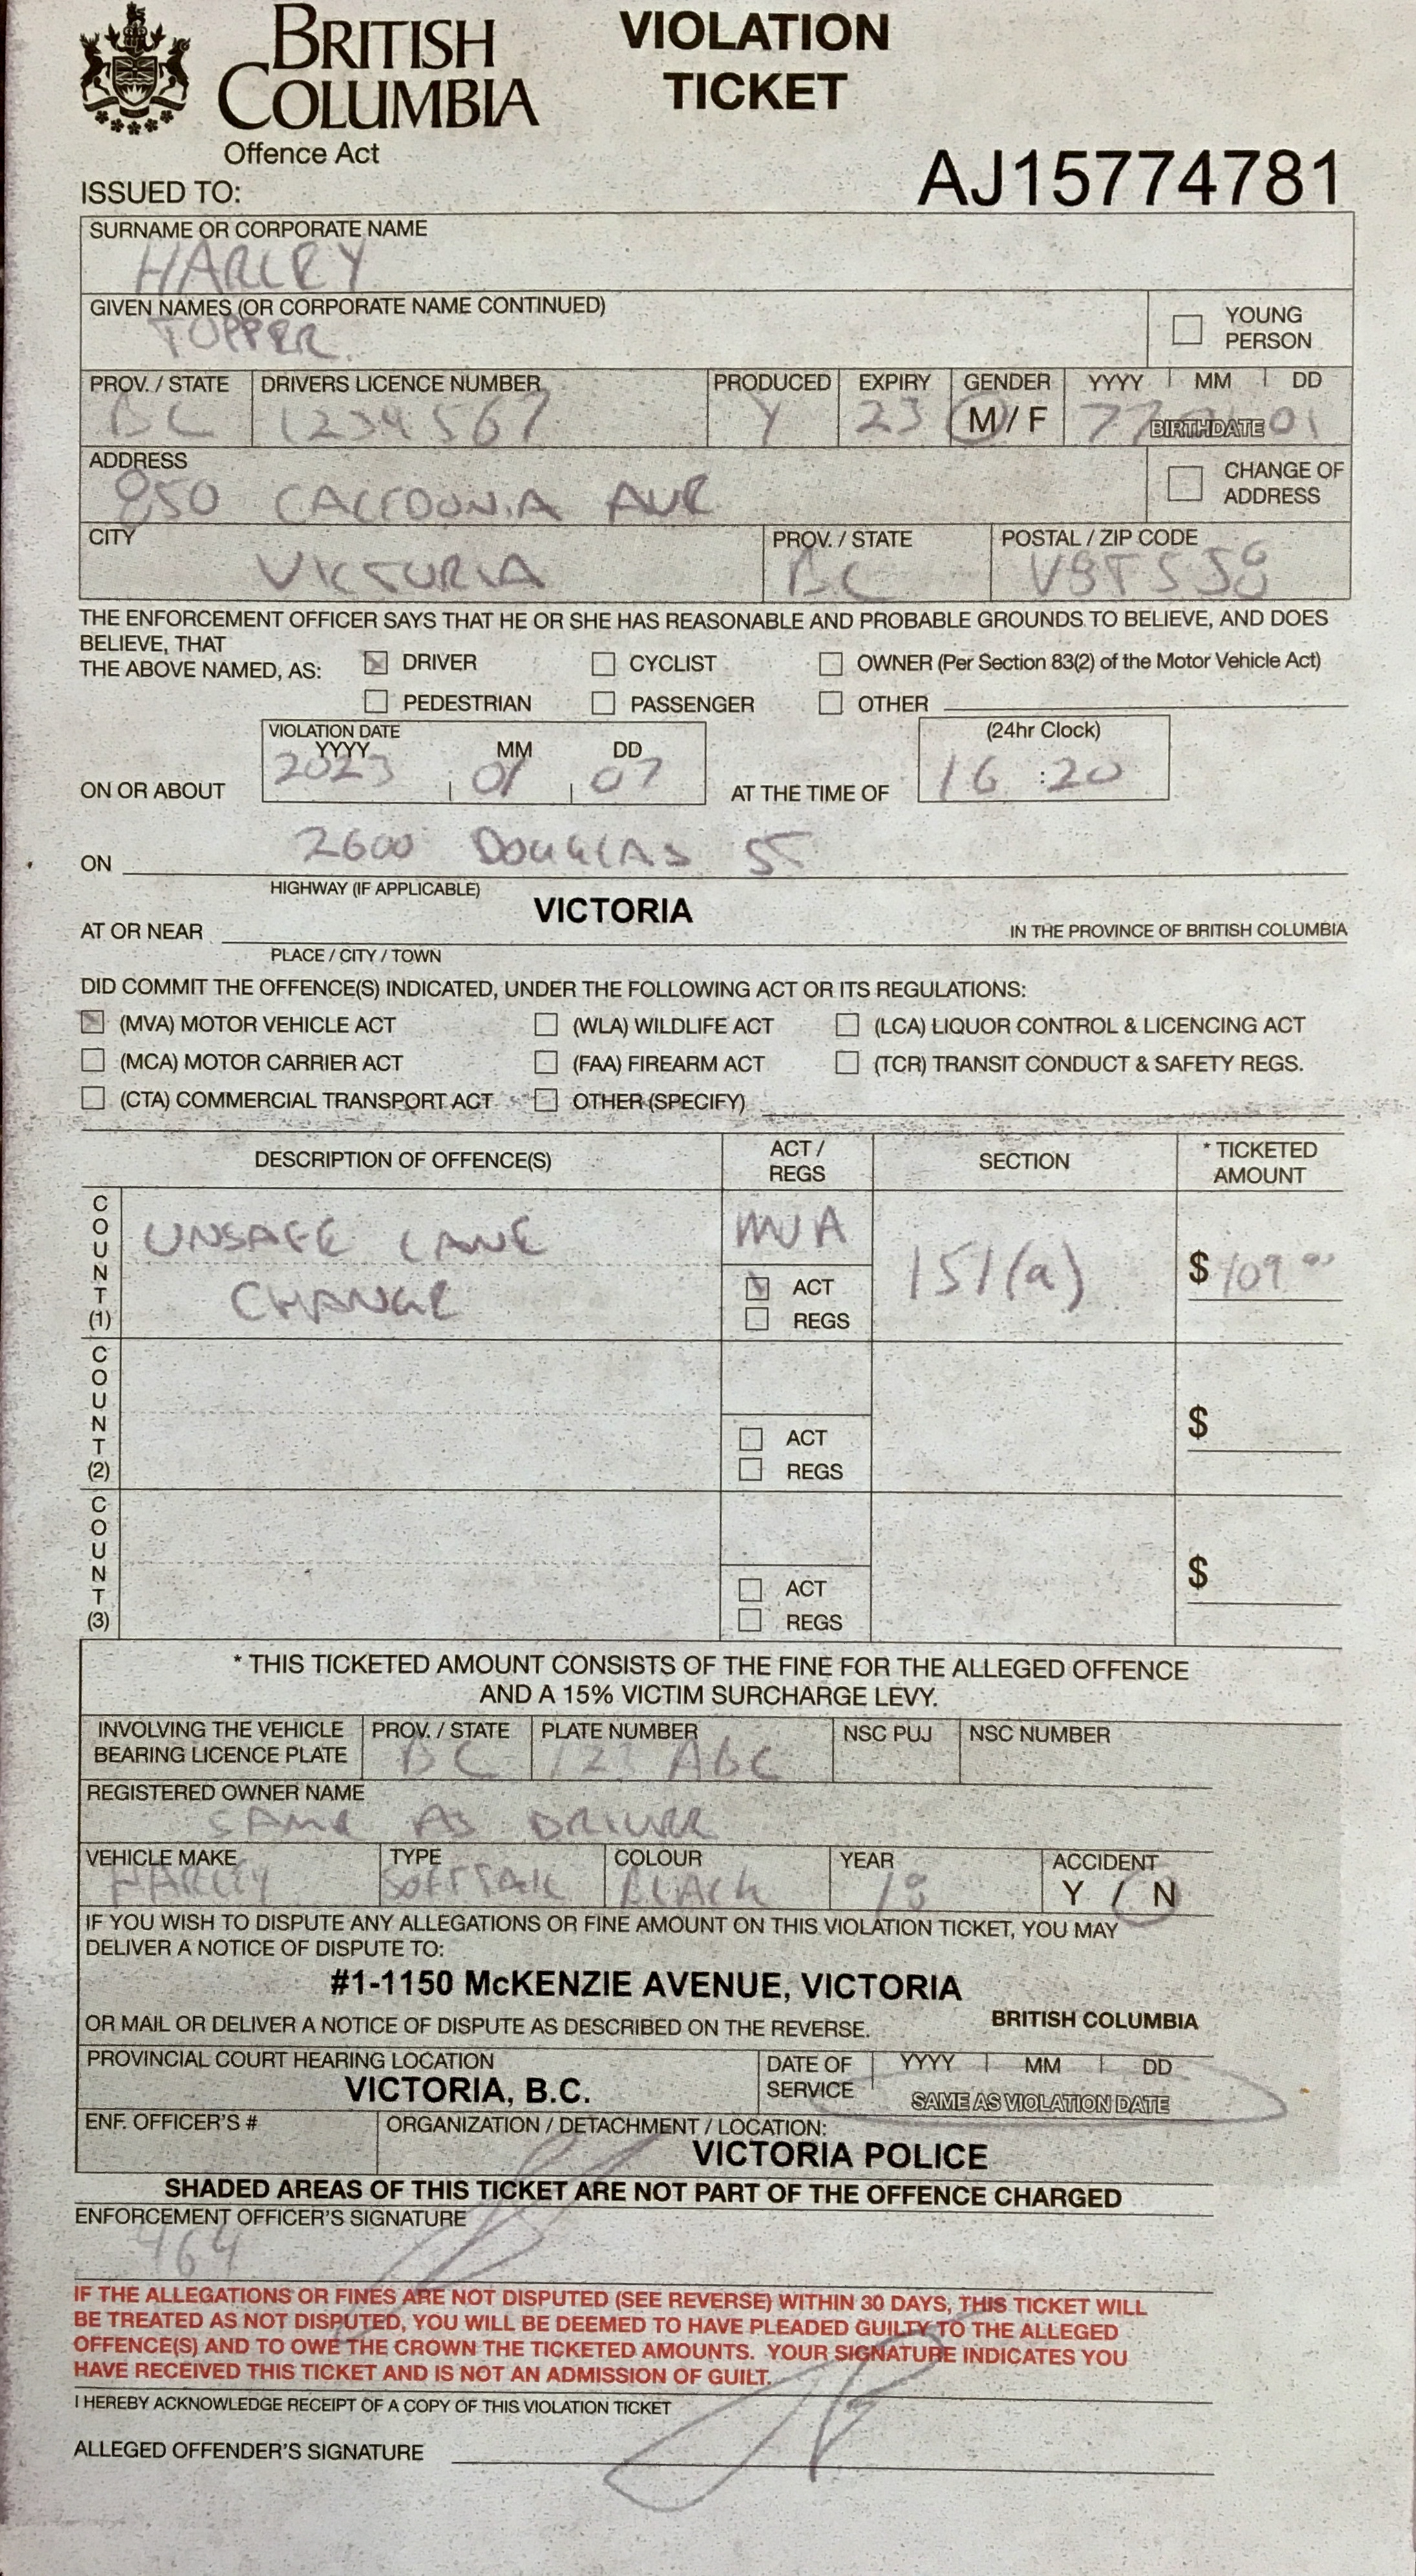 BRITISH COLUMBIA
Offence Act
VIOLATION TICKET
AJ15774781
ISSUED TO:
SURNAME OR CORPORATE NAME
HARLEY
GIVEN NAMES (OR CORPORATE NAME CONTINUED)
TOPPER
YOUNG PERSON
PROV. / STATE DRIVERS LICENCE NUMBER PRODUCED EXPIRY GENDER YYYY MM DD
BC 1234567 Y 23 M / F 77 BIRTHDATE 01
ADDRESS
850 CALEDONIA AVE
CHANGE OF ADDRESS
CITY PROV. / STATE POSTAL / ZIP CODE
VICTORIA BC V8T 5J8
THE ENFORCEMENT OFFICER SAYS THAT HE OR SHE HAS REASONABLE AND PROBABLE GROUNDS TO BELIEVE, AND DOES
BELIEVE, THAT
THE ABOVE NAMED, AS: DRIVER CYCLIST OWNER (Per Section 83(2) of the Motor Vehicle Act)
PEDESTRIAN PASSENGER OTHER
VIOLATION DATE (24hr Clock)
YYYY MM DD
2023 01 07 16:20
ON OR ABOUT AT THE TIME OF
ON 2600 DOUGLAS ST
HIGHWAY (IF APPLICABLE)
AT OR NEAR VICTORIA IN THE PROVINCE OF BRITISH COLUMBIA
PLACE / CITY / TOWN
DID COMMIT THE OFFENCE(S) INDICATED, UNDER THE FOLLOWING ACT OR ITS REGULATIONS:
(MVA) MOTOR VEHICLE ACT (WLA) WILDLIFE ACT (LCA) LIQUOR CONTROL & LICENCING ACT
(MCA) MOTOR CARRIER ACT (FAA) FIREARM ACT (TCR) TRANSIT CONDUCT & SAFETY REGS.
(CTA) COMMERCIAL TRANSPORT ACT OTHER (SPECIFY)
DESCRIPTION OF OFFENCE(S) ACT / REGS SECTION * TICKETED AMOUNT
COUNT (1)
UNSAFE LANE MVA
CHANGE ACT 151(a) $ 109 00
REGS
COUNT (2)
ACT $
REGS
COUNT (3)
ACT $
REGS
* THIS TICKETED AMOUNT CONSISTS OF THE FINE FOR THE ALLEGED OFFENCE
AND A 15% VICTIM SURCHARGE LEVY.
INVOLVING THE VEHICLE BEARING LICENCE PLATE PROV. / STATE PLATE NUMBER NSC PUJ NSC NUMBER
BC 123 ABC
REGISTERED OWNER NAME
SAME AS DRIVER
VEHICLE MAKE TYPE COLOUR YEAR ACCIDENT
HARLEY SOFTTAIL BLACK 18 Y / N
IF YOU WISH TO DISPUTE ANY ALLEGATIONS OR FINE AMOUNT ON THIS VIOLATION TICKET, YOU MAY
DELIVER A NOTICE OF DISPUTE TO:
#1-1150 McKENZIE AVENUE, VICTORIA
BRITISH COLUMBIA
OR MAIL OR DELIVER A NOTICE OF DISPUTE AS DESCRIBED ON THE REVERSE.
PROVINCIAL COURT HEARING LOCATION DATE OF SERVICE YYYY MM DD
VICTORIA, B.C. SAME AS VIOLATION DATE
ENF. OFFICER'S # ORGANIZATION / DETACHMENT / LOCATION:
VICTORIA POLICE
SHADED AREAS OF THIS TICKET ARE NOT PART OF THE OFFENCE CHARGED
ENFORCEMENT OFFICER'S SIGNATURE
464
IF THE ALLEGATIONS OR FINES ARE NOT DISPUTED (SEE REVERSE) WITHIN 30 DAYS, THIS TICKET WILL
BE TREATED AS NOT DISPUTED, YOU WILL BE DEEMED TO HAVE PLEADED GUILTY TO THE ALLEGED
OFFENCE(S) AND TO OWE THE CROWN THE TICKETED AMOUNTS. YOUR SIGNATURE INDICATES YOU
HAVE RECEIVED THIS TICKET AND IS NOT AN ADMISSION OF GUILT.
I HEREBY ACKNOWLEDGE RECEIPT OF A COPY OF THIS VIOLATION TICKET
ALLEGED OFFENDER'S SIGNATURE